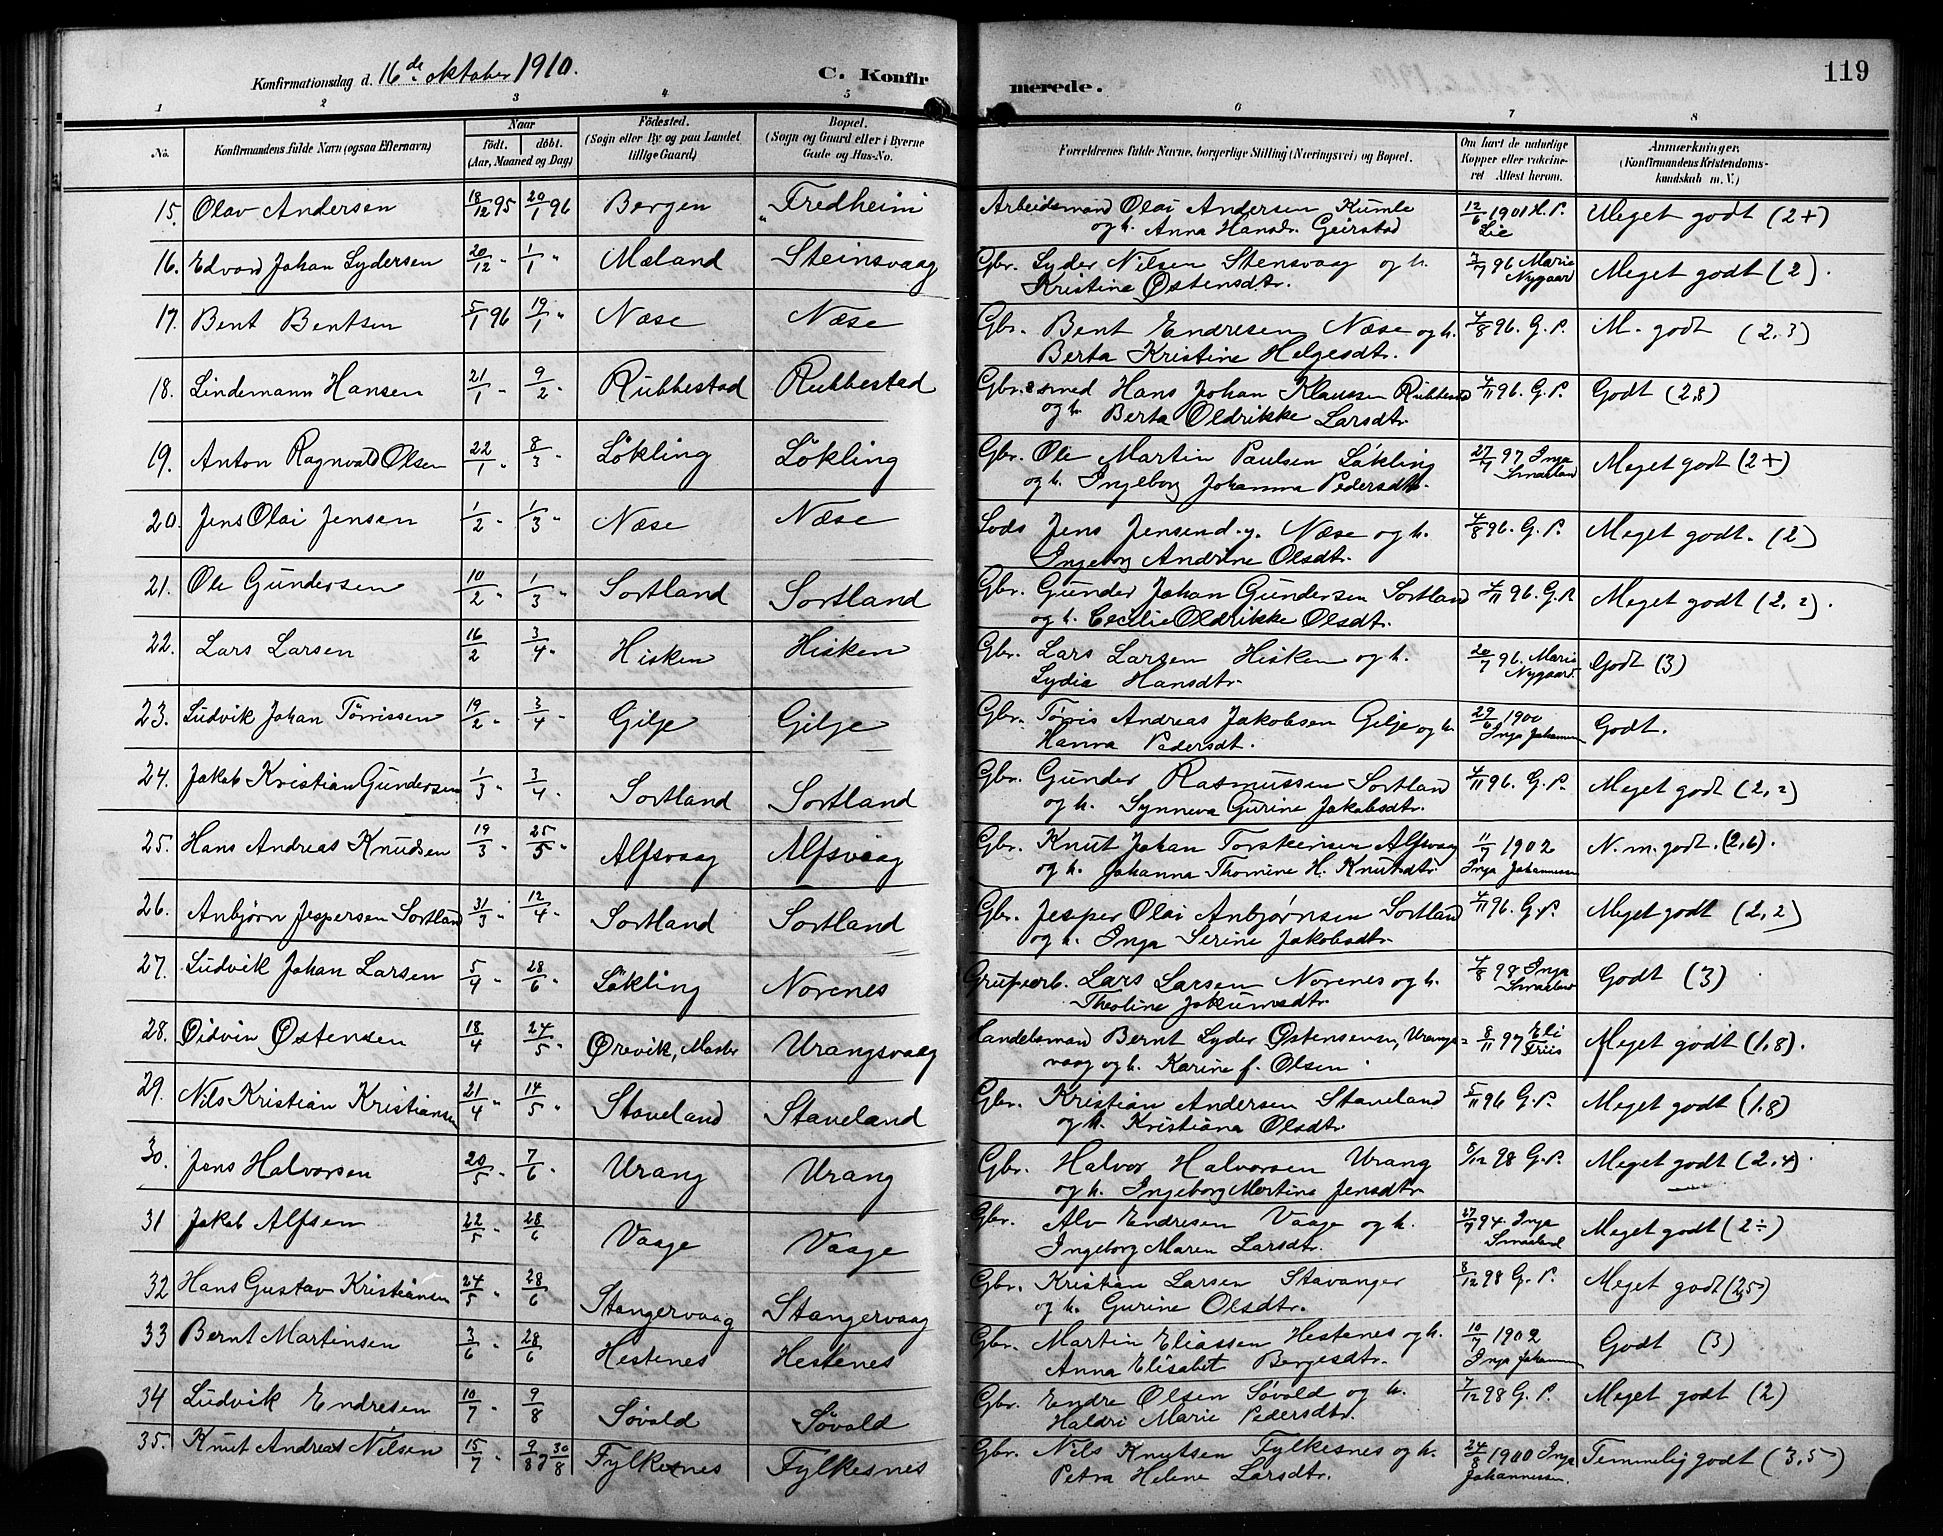 Konfirmationsdag d. 16de oktober 1910.
C. Konfirmerede.
119
1 2 3 4 5 6 7 8
No.
Konfirmandens fulde Navn (ogsaa Efternavn)
Naar
født. døbt.
(Aar, Maaned og Dag)
Fødested.
(Sogn eller By og paa Landet
tillige Gaard)
Bopæl.
(Sogn og Gaard eller i Byerne
Gade og Hus-No.
Forældrenes fulde Navne, borgerlige Stilling (Næringsvei) og Bopæl.
Om havt de naturlige
Kopper eller vakcine-
ret Attest herom.
Anmærkninger.
(Konfirmandens Kristendoms-
kundskab m. V.)
15. Olav Andersen 18/12 95 20/1 96 Bergen "Fredheim Arbeidsmand Olai Andersen Kumle 12/6 1901 H. P. Meget godt (2+)
og h. Anna Hansdr. Geirstad Lie
16. Edvard Johan Lydersen 20/12 " 1/1 " Mæland Steinsvaag Gbr. Lyder Nilsen Stensvaag og h. 7/7 96 Marie Meget godt (2).
Kristine Østensdtr. Nygaard
17. Bent Bentsen 5/1 96 19/1 " Næse Næse Gbr. Bent Endresen Næse og h. 4/8 96. G. P. M. godt (2,3)
Berta Kristine Helgesdtr.
18. Lindemann Hansen 21/1 " 9/2 " Rubbestad Rubbestad Gbr & smed Hans Johan Klaussen Rubbestad 4/11 96. G. P. Godt (2,8)
og h. Berta Oldrikke Larsdtr.
19. Anton Ragnvald Olsen 22/1 " 8/3 " Løkling Løkling Gbr. Ole Martin Paulsen Løkling 27/7 97 Inga Meget godt (2+)
og h. Ingeborg Johanna Pedersdtr. Smaaland
20. Jens Olai Jensen 1/2 " 1/3 " Næse Næse Lods Jens Jensen d. y. Næse og h. 4/8 96. G. P. Meget godt. (2)
Ingeborg Andrine Olsdtr.
21. Ole Gundersen 10/2 " 1/3 " Sortland Sortland Gbr. Gunder Johan Gundersen Sortland 4/11 96. G. P Meget godt (2,2).
og h. Cecilie Oldrikke Olsdtr.
22. Lars Larsen 16/2 3/4 " Hisken Hisken Gbr. Lars Larsen Hisken og h. 20/7 96. Marie Godt (3)
Lydia Hansdtr. Nygaard.
23. Ludvik Johan Tørrissen 19/2 " 3/4 " Gilje Gilje Gbr. Tøris Andreas Jakobsen Gilje og h. 29/6 1900 Godt.
Hanna Pedersdt. Inga Johannesen
24. Jakob Kristian Gundersen 1/3 " 3/4 " Sortland Sortland Gbr. Gunder Rasmussen Sortland 4/11 96. G. P. Meget godt (2,2)
og h. Synneva Gurine Jakobsdtr.
25. Hans Andreas Knudsen 19/3 " 25/5 " Alfsvaag Alfsvaag Gbr. Knut Johan Torsteinsen Alfsvaag 11/7 1902 N. m. godt. (2,6).
og h. Johanna Thomine H. Knutsdtr. Inga Johannesen
26. Anbjørn Jespersen Sortland 31/3 " 12/4 " Sortland Sortland Gbr. Jesper Olai Anbjørnsen Sortland 4/11 96. G. P. Meget godt (2,2)
og h. Inga Serine Jakobsdtr.
27. Ludvik Johan Larsen 5/4 " 28/6 " Løkling Norenes Grubearb. Lars Larsen Norenes og h. 4/8 98 Inga Godt (3)
Theoline Jokumsdtr. Smaaland
28. Øidvin Østensen 18/4 24/5 " Ørevik, Moster Urangsvaag Handelsmand Bernt Lyder Østensen, Urangs= 8/11 97 Eli Meget godt (1,8).
vaag og h. Karine f. Olsen Friis
29. Nils Kristian Kristiansen 21/4 " 14/5 " Staveland Staveland Gbr. Kristian Andersen Staveland 5/11 96 G. P. Meget godt (1,8)
og h. Kristiana Olsdtr.
30. Jens Halvorsen 20/5 " 7/6 " Urang Urang Gbr. Halvor Halvorsen Urang 8/12 98 G. P. Meget godt (2,4).
og h. Ingeborg Martina Jensdtr.
31 Jakob Alfsen 22/5 " 28/6 Vaage Vaage Gbr. Alv Endresen Vaage og h. 27/7 94. Inga Meget godt (2÷)
Ingeborg Maren Larsdtr. Smaaland
32 Hans Gustav Kristiansen 24/5 " 28/6 Stangervaag Stangervaag Gbr. Kristian Larsen Stavanger 8/12 98 G. P. Meget godt (2,5)
og h. Gurine Olsdtr.
33 Bernt Martinsen 3/6 " 28/6 Hestenes Hestenes Gbr. Martin Eliassen Hestenes og h. 10/7 1902 Godt (3)
Anna Elisabet Børgesdtr. Inga Johannesen
34 Ludvik Endresen 10/7 " 9/8 Søvold Søvold Gbr. Endre Olsen Søvold og h. 7/12 98 G. P. Meget godt (2)
Haldri Marie Pedersdtr.
35. Knut Andreas Nilsen 15/7 " 9/8 og 30/8 Fylkesnes Fylkesnes Gbr. Nils Knutsen Fylkesnes og h. 24/8 1900 Inga Temmelig godt (3,5)
Petra Helene Larsdtr. Johannessen.